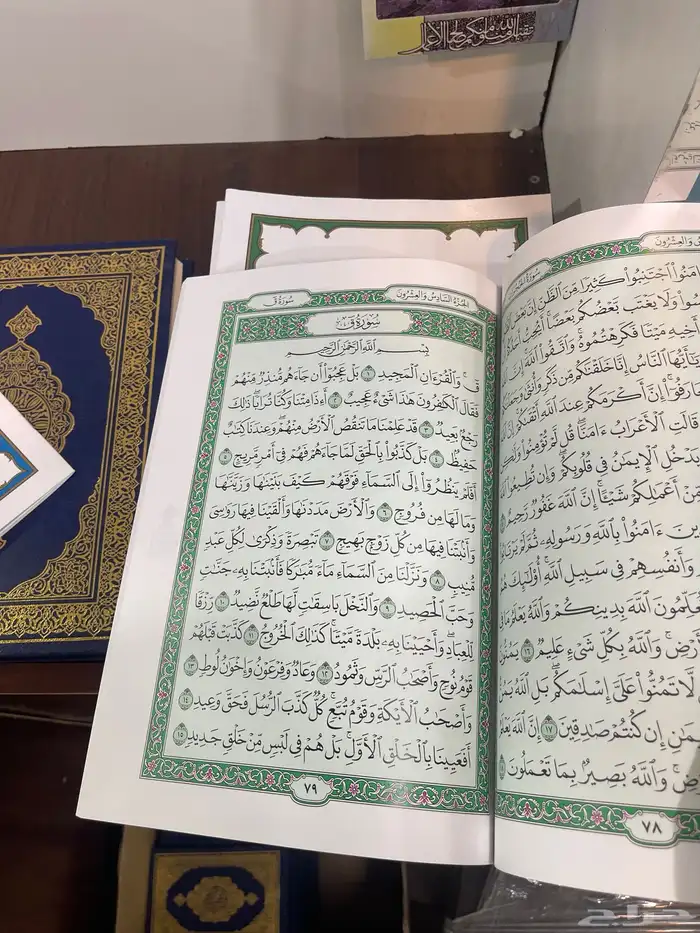 تقبل الله منا ومنكم صالح الأعمال
سُورَةُ قٓ
الجُزْءُ السَّادِسُ وَالعِشْرُونَ
سُورَةُ قٓ
بِسْمِ ٱللَّهِ ٱلرَّحْمَٰنِ ٱلرَّحِيمِ
قٓۚ وَٱلْقُرْءَانِ ٱلْمَجِيدِ ١ بَلْ عَجِبُوٓا۟ أَن جَآءَهُم مُّنذِرٌ مِّنْهُمْ
فَقَالَ ٱلْكَٰفِرُونَ هَٰذَا شَىْءٌ عَجِيبٌ ٢ أَءِذَا مِتْنَا وَكُنَّا تُرَابًا ۖ ذَٰلِكَ
رَجْعٌۢ بَعِيدٌ ٣ قَدْ عَلِمْنَا مَا تَنقُصُ ٱلْأَرْضُ مِنْهُمْ ۖ وَعِندَنَا كِتَٰبٌ
حَفِيظٌۢ ٤ بَلْ كَذَّبُوا۟ بِٱلْحَقِّ لَمَّا جَآءَهُمْ فَهُمْ فِىٓ أَمْرٍ مَّرِيجٍ ٥
أَفَلَمْ يَنظُرُوٓا۟ إِلَى ٱلسَّمَآءِ فَوْقَهُمْ كَيْفَ بَنَيْنَٰهَا وَزَيَّنَّٰهَا
وَمَا لَهَا مِن فُرُوجٍ ٦ وَٱلْأَرْضَ مَدَدْنَٰهَا وَأَلْقَيْنَا فِيهَا رَوَٰسِىَ
وَأَنۢبَتْنَا فِيهَا مِن كُلِّ زَوْجٍۭ بَهِيجٍ ٧ تَبْصِرَةً وَذِكْرَىٰ لِكُلِّ عَبْدٍ
مُّنِيبٍ ٨ وَنَزَّلْنَا مِنَ ٱلسَّمَآءِ مَآءً مُّبَٰرَكًا فَأَنۢبَتْنَا بِهِۦ جَنَّٰتٍ
وَحَبَّ ٱلْحَصِيدِ ٩ وَٱلنَّخْلَ بَاسِقَٰتٍ لَّهَا طَلْعٌ نَّضِيدٌ ١٠ رِّزْقًا
لِّلْعِبَادِ ۖ وَأَحْيَيْنَا بِهِۦ بَلْدَةً مَّيْتًا ۚ كَذَٰلِكَ ٱلْخُرُوجُ ١١ كَذَّبَتْ قَبْلَهُمْ
قَوْمُ نُوحٍ وَأَصْحَٰبُ ٱلرَّسِّ وَثَمُودُ ١٢ وَعَادٌ وَفِرْعَوْنُ وَإِخْوَٰنُ لُوطٍ ١٣
وَأَصْحَٰبُ ٱلْأَيْكَةِ وَقَوْمُ تُبَّعٍ ۚ كُلٌّ كَذَّبَ ٱلرُّسُلَ فَحَقَّ وَعِيدِ ١٤
أَفَعَيِينَا بِٱلْخَلْقِ ٱلْأَوَّلِ ۚ بَلْ هُمْ فِى لَبْسٍ مِّنْ خَلْقٍ جَدِيدٍ ١٥
٧٩
ٱجْتَنِبُوا۟ كَثِيرًا مِّنَ ٱلظَّنِّ إِنَّ
وَلَا يَغْتَب بَّعْضُكُم بَعْضًا ۚ أَيُحِبُّ
أَخِيهِ مَيْتًا فَكَرِهْتُمُوهُ ۚ وَٱتَّقُوا۟ ٱللَّهَ
يَٰٓأَيُّهَا ٱلنَّاسُ إِنَّا خَلَقْنَٰكُم مِّن ذَكَرٍ وَأُنثَىٰ
إِنَّ أَكْرَمَكُمْ عِندَ ٱللَّهِ أَتْقَىٰكُمْ
قَالَتِ ٱلْأَعْرَابُ ءَامَنَّا ۖ قُل لَّمْ تُؤْمِنُوا۟
يَدْخُلِ ٱلْإِيمَٰنُ فِى قُلُوبِكُمْ ۖ وَإِن تُطِيعُوا۟
مِّنْ أَعْمَٰلِكُمْ شَيْـًٔا ۚ إِنَّ ٱللَّهَ غَفُورٌ رَّحِيمٌ
ءَامَنُوا۟ بِٱللَّهِ وَرَسُولِهِۦ ثُمَّ لَمْ
وَأَنفُسِهِمْ فِى سَبِيلِ ٱللَّهِ ۚ أُو۟لَٰٓئِكَ
ٱللَّهَ بِدِينِكُمْ وَٱللَّهُ يَعْلَمُ مَا
وَٱللَّهُ بِكُلِّ شَىْءٍ عَلِيمٌ ١٦
لَّا تَمُنُّوا۟ عَلَىَّ إِسْلَٰمَكُم ۖ بَلِ ٱللَّهُ
إِن كُنتُمْ صَٰدِقِينَ ١٧ إِنَّ ٱللَّهَ
وَٱللَّهُ بَصِيرٌۢ بِمَا تَعْمَلُونَ
٧٨
حراج